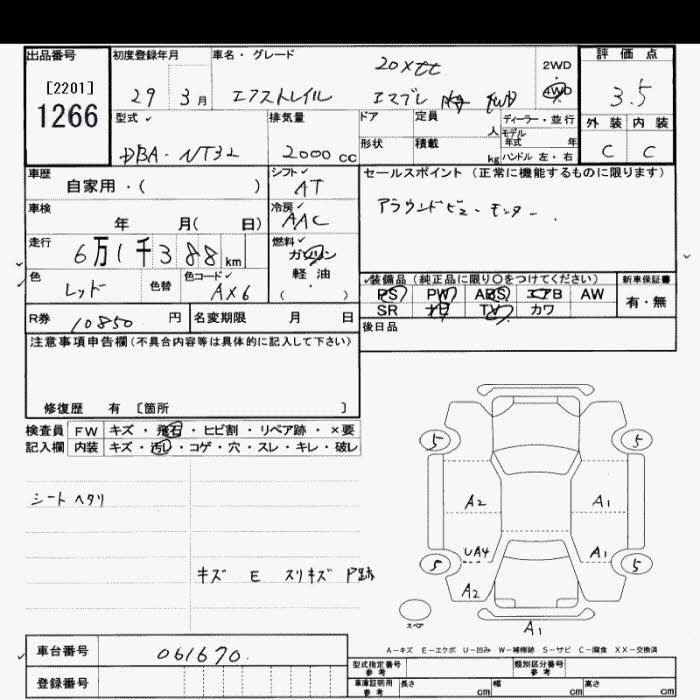 出品番号 初度登録年月 車名・グレード 20Xtt 2WD 評価点
[2201] 29 3月 エクストレイル エマブレ 4WD 3.5
1266 型式 排気量 ドア 定員 人 ディーラー・並行 外装 内装
DBA-NT32 2000cc 形状 積載 kg モデル年式 年 ハンドル 左・右 C C
車歴 シフト セールスポイント (正常に機能するものに限ります)
自家用・( ) AT アラウンドビューモニター.
車検 冷房
年 月( 日) AAC
走行 燃料
6万1千388km ガソリン
色 色替 色コード 軽油 装備品 (純正品に限り〇をつけてください) 新車保証書
レッド AX6 ( ) PS PW ABS エアB AW 有・無
R券 10850円 名変期限 月 日 SR カワ TV カワ
注意事項申告欄(不具合内容等は具体的に記入して下さい) 後日品
修復歴 有 [箇所 ]
検査員 FW キズ・飛石・ヒビ割・リペア跡・×要
記入欄 内装 キズ・汚れ・コゲ・穴・スレ・キレ・破レ
シートヘタリ
キズ E スリキズ P跡
5 5
A2 A1
UA4 A1
5 5
A2
スペア A1
A-キズ E-エクボ U-凹み W-補修跡 S-サビ C-腐食 XX-交換済
車台番号 061670. 型式指定番号 参考 類別区分番号 参考
登録番号 車庫証明用 参考 長さ cm 幅 cm 高さ cm